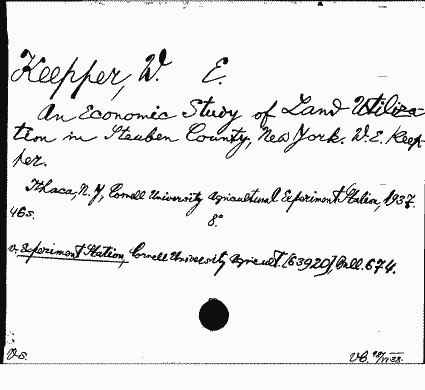 Keepper, W. E.
An Economic Study of Land Utiliza-
tion in Steuben County, New York. W. E. Keep-
per.
Ithaca, N. Y, Cornell University Agricultural Experiment Station, 1937.
46s. 8°.
v. Experiment Station, Cornell University Agricult. [63920] Bull. 674.